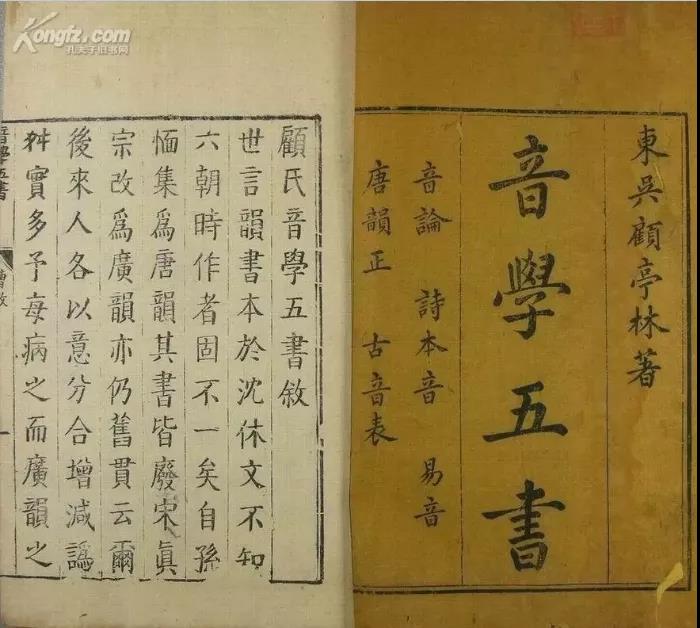 東吳顧亭林著
音學五書
音論 詩本音 易音
唐韻正 古音表
顧氏音學五書敘
世言韻書本於沈休文不知
六朝時作者固不一矣自孫
愐集為唐韻其書皆廢宋眞
宗改爲廣韻亦仍舊貫云爾
後來人各以意分合增減譌
舛實多予每病之而廣韻之
音學五書
曹敘
一
Kongfz.com
孔夫子旧书网